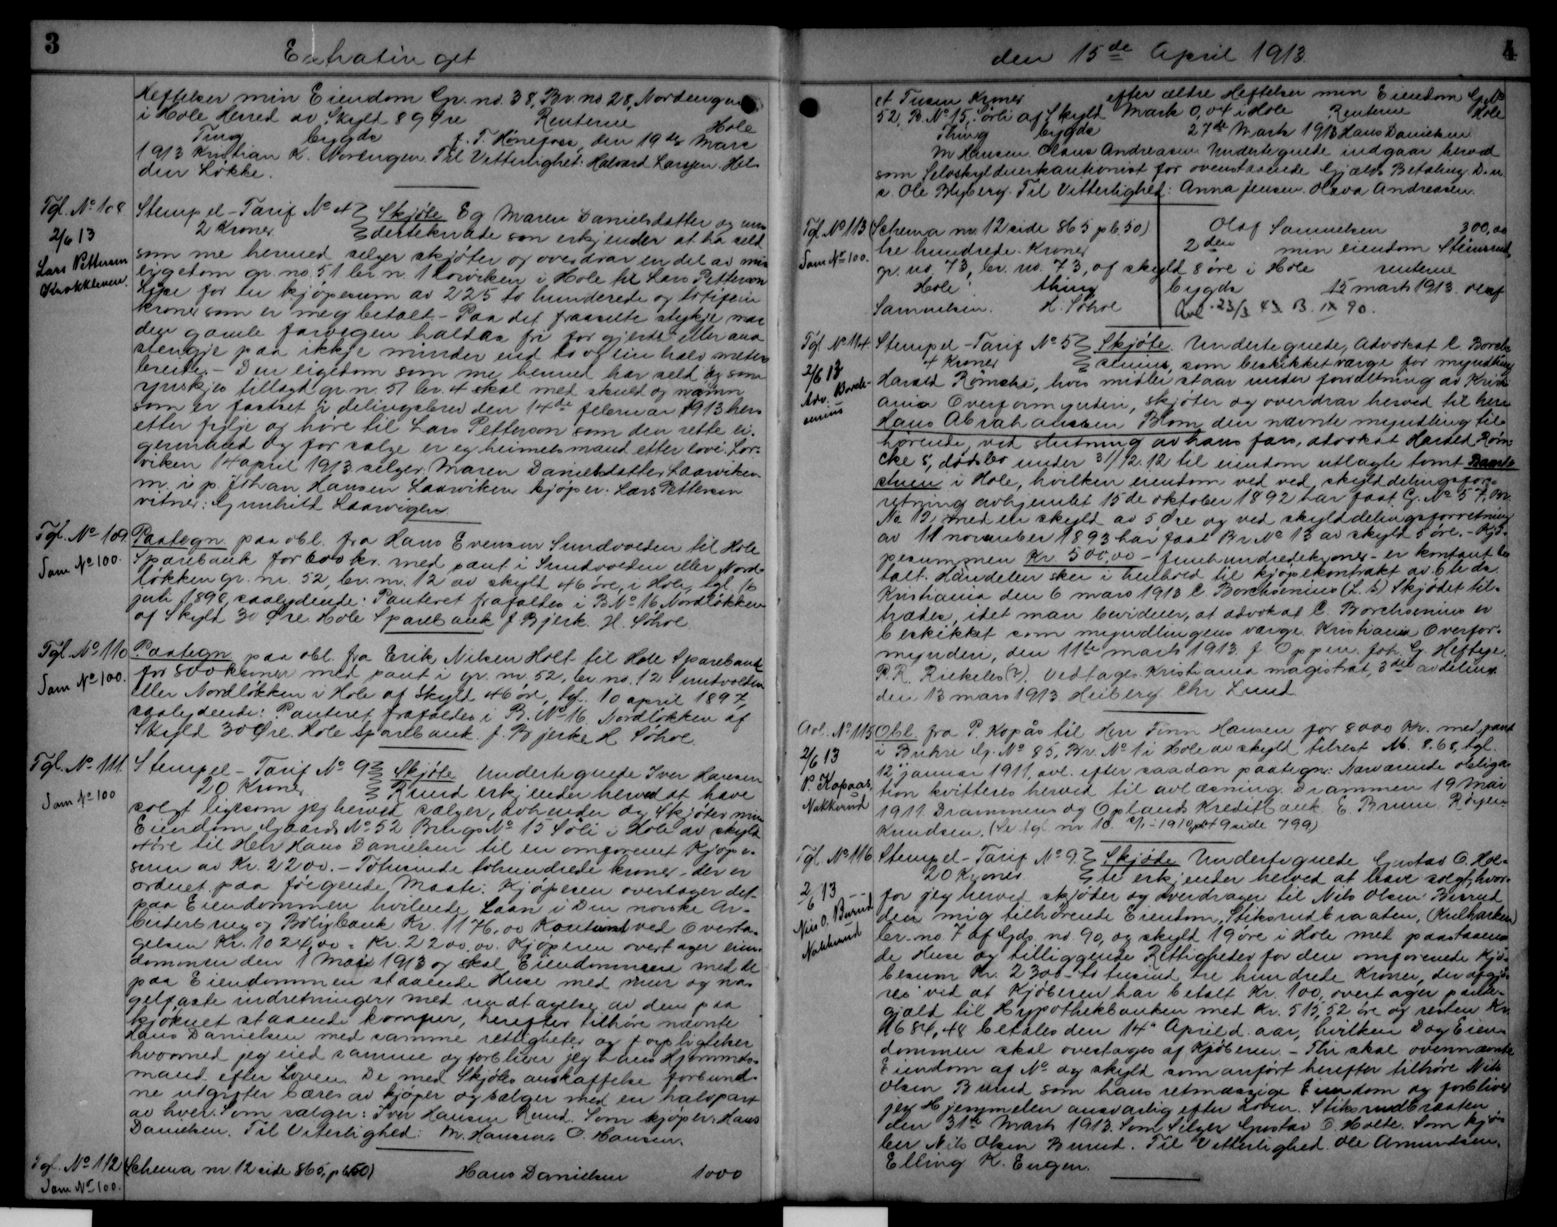 3
Extratinget
Heftelser min Eiendom Gr. no. 38, Br. no 28, Nordengen
i Hole Herred av Skyld 89 Øre Renterne Hole
Ting bygds f. T. Hønefoss, den 19de Mars
1913 Kristian K. Nordengen. Til Vitterlighet: Halvard Larsen. Hel-
den Løkke.
Tgl. No 108
2/6 13
Lars Petterson
Krokkleven.
Stempel-Tarif No 4 Skjøte Eg Maren Danielsdatter og un-
2 Kroner derteknade son erkjender at ha seld
som me hermed selger skjøter og overdrar en del av min
eigedom gr. no. 51 br. n. 1 Lorviken i Hole til Lars Petterson
for en kjøpesum av 225 to hunderede og totifem
kroner som er meg betalt - Paa det fraseilte stykje maa
den gamle farvegen haldas fri for gjerde eller ana
stengje paa ikkje minder end to og ein halv meters
breide. - Den eigedom som me hermed har seld og som
ynskjes tillagd gr. n. 51 br. 4 skal med skuld og namn
som er fastset i delingsbrev den 14de februar 1913 her-
etter fylje og høre til Lars Petterson som den rette ei-
germand og for salge er eg heimelsmand etter lovi. Lor-
viken 14 april 1913 selger Maren Danielsdatter Laarviken
m. i. p. Johan Hansen Laarviken kjøper. Lars Petterson
vitner: Gunhild Laarvigen
Tgl. No 109
Sam No 100.
Paategn. paa obl. fra Hans Evensen Sundvolden til Hole
Sparebank for 600 kr. med pant i Sundvolden eller Nord-
løkken gr. nr. 52, br. nr. 12 av skyld 46 øre, i Hole, tgl. 16
juli 1890, saalydende: Panteret frafaldes i B. No 16 Nordløkken
af Skyld 30 Øre Hole Sparebank J Bjerke. H. Søhol
Tgl. No 110
Sam No 100.
Paategn. paa obl. fra Erik Nilsen Holt til Hole Sparebank
for 800 kroner med pant i gr. nr. 52, br. no. 12 Sundvolden
eller Nordløkken i Hole af skyld 46 øre, tgl. 10 april 1897,
saalydende: Panteret frafaldes i B. No 16 Nordløkken af
Skyld 30 Øre. Hole Sparebank. J. Bjerke H. Søhol
Tgl. No 111.
Sam No 100
Stempel-Tarif No 9 Skjøte Undertegnede Iver Hansen
20 Kroner Rund erkjender herved at have
solgt ligesom jeg herved sælger, avhender og skjøter min
Eiendom Gaards No 52 Brugs No 15 Søli i Hole av skyld
4 øre til Herr Hans Danielsen til en omforenet Kjøpe-
sum av Kr. 2200. - Totusinde tohundrede kroner - der er
ordnet paa følgende Maate: Kjøperen overtager det
paa Eiendommen hvilende Laan i Den norske Ar-
beiderbrug og Boligbank Kr. 1176,00 Kontant ved Overta-
gelsen Kr. 1024,00 = Kr. 2200,00. Kjøperen overtager eien-
dommen den 1 Mai 1913 og skal Eiendommen med de
paa Eiendommen staaende Huse med mur og na-
gelfaste indretninger med undtagelse av den paa
kjøknet staaende komfur, herefter tilhøre nævnte
Hans Danielsen med samme rettigheter og forpligtelser
hvormed jeg eied samme og forbliver jeg hans Hjemmels-
mand efter Loven. De med Skjøtes anskaffelse forbund-
ne utgifter bæres av kjøper og sælger med en halvpart
av hver. Som sælger: Iver Hansen Rund. Som kjøper: Hans
Danielsen. Til Vitterlighed: M. Hansen. O. Hansen.
Tgl. No 112
Sam No 100.
(Schema nr 12 side 865, p 650) Hans Danielsen 1000
4
den 15de April 1913.
et Tusen Kroner efter ældre Heftelser min Eiendom G. No
52, B. No 15, Sørli af Skyld Mark 0,04 i Hole Renterne Hole
Thing bygds 27de Marts 1913 Hans Danielsen
M Hansen Olaus Andreasen. Undertegnede indgaar herved
som Selvskyldnerkautionist for ovenstaaende Gjælds Betaling. D. u.
s. Ole Blyberg. Til Vitterlighed: Anna Jensen. Olava Andreasen.
Tgl No 113
Sam No 100.
(Schema nr. 12 side 865 p 650) Olaf Samuelsen 300,00
tre hundrede Kroner 2den min eiendom Steinsrud
gr. no. 73, br. no. 73, af skyld 8 øre i Hole renterne
Hole thing bygds 15 marts 1913. Olaf
Samuelsen. H. Søhol Avl. 23/3 43 B. IX 90.
Tgl. No 114
2/6 13
Adv. Borch-
senius
Stempel-Tarif No 5 Skjøte. Undertegnede, Advokat C Borch-
4 Kroner senius, som beskikket værge for myndling
Harald Rømcke, hvis midler staar under forvaltning av Kristi-
ania Overformynderi, skjøter og overdrar herved til herr
Hans Abrahamsen Blom, den nævnte myndling til-
hørende, ved slutning av hans fars, advokat Harald Røm-
cke's, dødsbo under 31/12.12 til eiendom utlagte tomt
stuen i Hole, hvilken eiendom ved ved, skylddelingsfor-
retning avhjemlet 15de oktober 1892 har faat G. No 57, Br.
No 12, med en skyld av 5 Øre og ved skylddelingsforretning
av 11 november 1893 har faat Br No 13 av skyld 5 øre. - Kjø-
pesummen Kr 500,00 - femhundredekroner - er kontant be-
talt. Handelen sker i henhold til kjøpekontrakt av 6te ds
Kristiania den 6 mars 1913 C Borchsenius (L. S.) Skjødet til-
trædes, idet man bevidner, at advokat C. Borchsenius er
beskikket som myndlingens værge. Kristiania Overfor-
mynderi, den 11te marts 1913 J Oppen. Joh. G. Heftye.
P R Rickeles(?). Vedtages. Kristiania magistrat, 3die avdeling
den 13 mars 1913 Heiberg Chr Lund
Avl. No 115
2/6 13
P. Kopaas
Nakkerud
Obl. fra P. Kopås til Herr Finn Hansen for 8000 Kr. med pant
i Buhre G. No 85, Br. No 1 i Hole av skyld tilrest M. 8.68, tgl.
12 januar 1911, avl. efter saadan paategn: Nærværende obliga-
tion kvitteres herved til avlæsning. Drammen 19 Mai
1911. Drammens og Oplands Kreditbank E. Bruun. Røyer
Knudsen. (Se tgl. nr 10 1910 9 side 799)
Tgl. No 116
2/6 13
Nils O. Burud
Nakkerud
Stempel-Tarif No 9 Skjøde Undertegnede Gustav O. Hol-
20 Kroner te erkjender herved at have solgt, hvor-
for jeg herved skjøder og overdrager til Nils Olsen Burud
den mig tilhørende Eiendom, Stiksrudbraaten,
br. no 7 af Gds no. 90, og skyld 19 øre i Hole med paastaaen-
de Huse og tilliggende Rettigheder for den omforenede Kjø-
besum Kr. 2300 - to tusend, tre hundrede Kroner, der afgjø-
res ved at Kjøberen har betalt Kr. 100, overtager pante-
gjæld til Hypothekbanken med Kr. 515,52 øre og resten Kr.
1684,48 betales den 14de April d. aar, hvilken Dag Eien-
dommen skal overtages af Kjøberen. - Thi skal ovennævnte
Eiendom af No og skyld som anført herefter tilhøre Nils
Olsen Burud som hans retmæssige Eiendom og forbliver
jeg Hjemmelen ansvarlig efter Loven. Stiksrudbraaten
den 31te Marts 1913. Som Sælger Gustav O. Holte. Som Kjø-
ber Nils Olsen Burud. Til Vitterlighed Ole Amundsen.
Elling K. Engen.